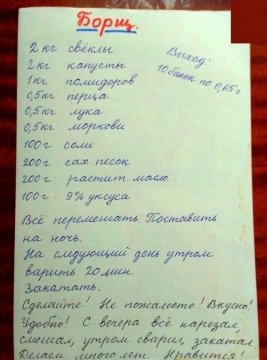 Борщ.
2 кг свёклы
2 кг капусты
1 кг помидоров
0,5 кг перца
0,5 кг лука
0,5 кг моркови
100 г соли
200 г сах песок
200 г растит масло
100 г 9% уксуса
Выход:
10 банок по 0,65 г
Всё перемешать. Поставить
на ночь.
На следующий день утром
варить 20 мин.
Закатать.
Сделайте! Не пожалеете! Вкусно!
Удобно! С вечера всё нарезал,
смешал, утром сварил, закатал.
Делаем много лет. Нравится!